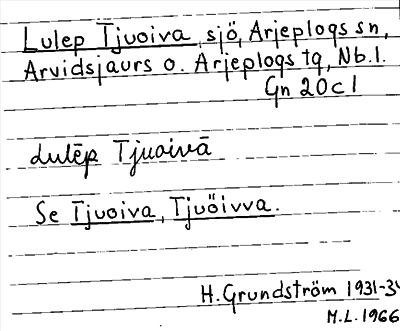 Lulep Tjuoiva, sjö, Arjeplogs sn,
Arvidsjaurs o. Arjeplogs tg, Nb.l.
Gn 20c1
dulēp Tjuoivā
Se Tjuoiva, Tjuöivva.
H. Grundström 1931-34
M.L. 1966